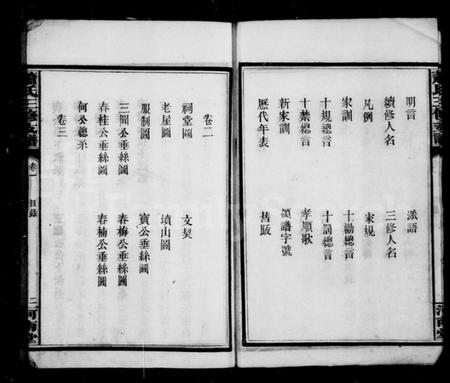 明言　派語
續修人名　三修人名
凡例　家規
家訓　十勸總言
十規總言　十罰總言
十禁總言　孝順歌
新家訓　領譜字號
歷代年表　舊跋
卷二
祠堂圖　文契
老屋圖　墳山圖
服制圖　賓公垂絲圖
三閏公垂絲圖　春梅公垂絲圖
春桂公垂絲圖　春楠公垂絲圖
何公總系
卷三
氏三修支譜
卷一
目錄
二